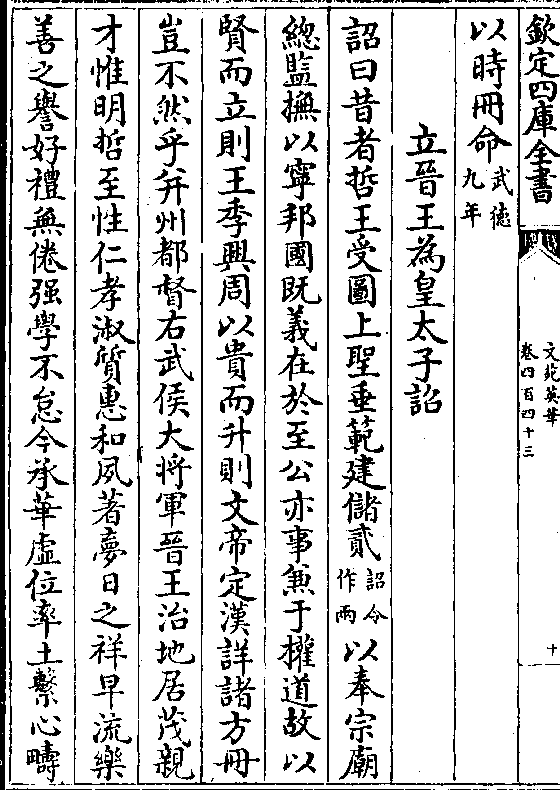 欽定四庫全書
文苑英華
卷四百四十三
十
以時冊命武德九年
立晉王為皇太子詔
詔曰昔者哲王受圖上聖垂範建儲貳詔令作兩以奉宗廟
總監撫以寧邦國既義在於至公亦事兼于權道故以
賢而立則王季興周以貴而升則文帝定漢詳諸方冊
豈不然乎并州都督右武侯大將軍晉王治地居茂親
才惟明哲至性仁孝淑質惠和夙著夢日之祥早流樂
善之譽好禮無倦强學不怠今承華虛位率土繫心疇